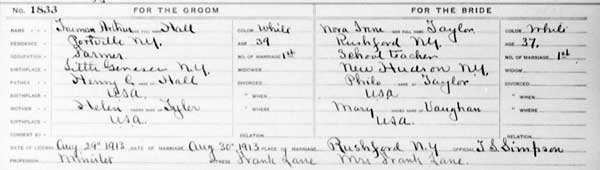 No. 1833 FOR THE GROOM FOR THE BRIDE
NAME Truman Arthur AND FULL NAME Hall COLOR White Nora Inne AND FULL NAME Taylor COLOR White
RESIDENCE Portville N.Y. AGE 39 Rushford N.Y. AGE 37,
OCCUPATION Farmer NO. OF MARRIAGE 1st School teacher NO. OF MARRIAGE 1st
BIRTHPLACE Little Genesee N.Y. WIDOWER New Hudson N.Y. WIDOW
FATHER Henry C. Hall DIVORCED Philo Taylor DIVORCED
BIRTHPLACE Usa. " WHEN USA " WHEN
MOTHER Helen MAIDEN NAME OF Tyler " WHERE Mary MAIDEN NAME OF Vaughan " WHERE
BIRTHPLACE USA. USA.
CONSENT BY RELATION RELATION
DATE OF LICENSE Aug 29th 1913 DATE OF MARRIAGE Aug 30th 1913 PLACE OF MARRIAGE Rushford N.Y OFFICIAL T.S. Simpson
PROFESSION Minister WITNESS Frank Lane Mrs Frank Lane.